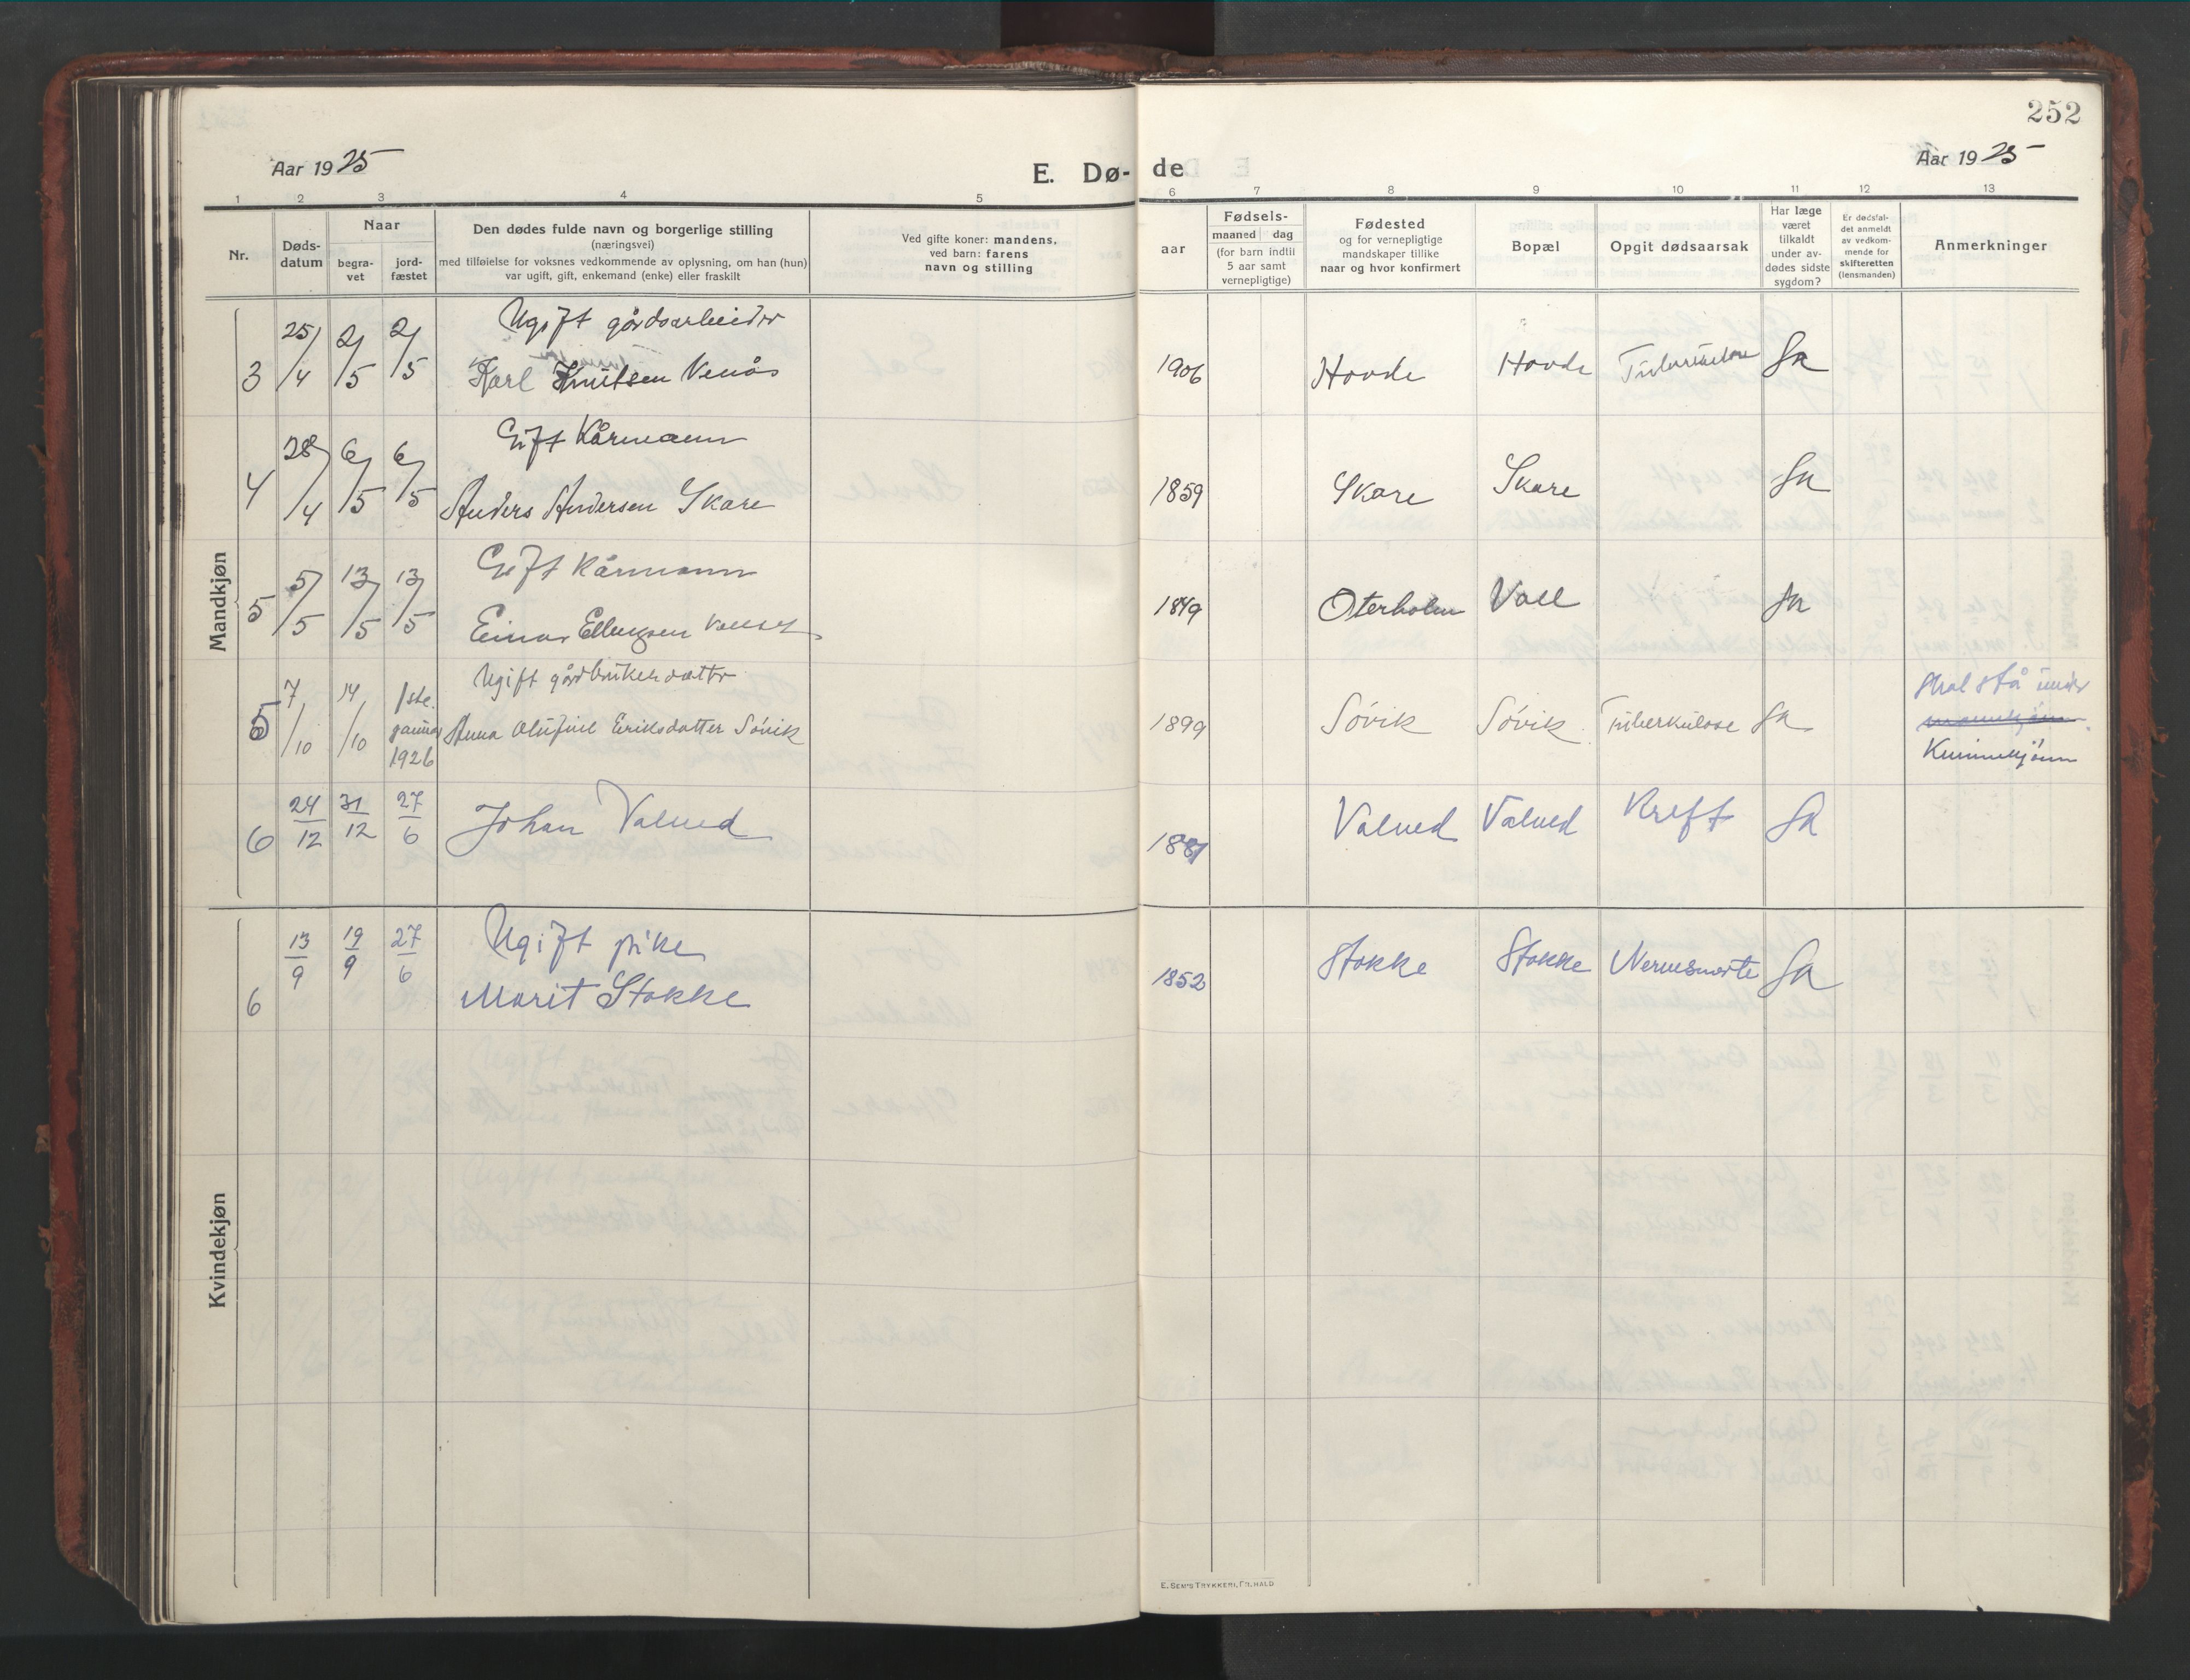 252
Aar 1925
E. Dø-
de
Aar 1925
1 2 3 4 5 6 7 8 9 10 11 12 13
Nr.
Døds-
datum
Naar
begra-
vet
jord-
fæstet
Den dødes fulde navn og borgerlige stilling
(næringsvei)
med tilføielse for voksnes vedkommende av oplysning, om han (hun)
var ugift, gift, enkemand (enke) eller fraskilt
Ved gifte koner: mandens,
ved barn: farens
navn og stilling
aar
Fødsels-
maaned dag
(for barn indtil
5 aar samt
vernepligtige)
Fødested
og for vernepligtige
mandskaper tillike
naar og hvor konfirmert
Bopæl
Opgit dødsaarsak
Har læge
været
tilkaldt
under av-
dødes sidste
sygdom?
Er dødsfal-
det anmeldt
av vedkom-
mende for
skifteretten
(lensmanden)
Anmerkninger
Mandkjøn
Ugift gårdsarbeider
3 25/4 2/5 2/5 Karl Knutsen Venås 1906 Hovde Hovde Tuberkulose Ja
Gift Kårmann
4 28/4 6/5 6/5 Anders Andersen Skare 1859 Skare Skare Ja
Gift Kårmann
5 5/5 13/5 13/5 Einar Ellingsen 1849 Oterholm Voll Ja
Ugift gårdbrukerdatter
5 7/10 14/10 1ste januar 1926 Anna Olufine Eriksdatter Sóvik 1899 Sóvik Sóvik Tuberkulose Ja
Skal stå under
mannkjønn
Kvinnekjønn
6 24/12 31/12 27/6 Johan Valved 1881 Valved Valved Kreft Ja
Kvindekjøn
Ugift pike
6 13/9 19/9 27/6 Marit Stokke 1852 Stokke Stokke Ja
E. SEM'S TRYKKERI, FR.HALD